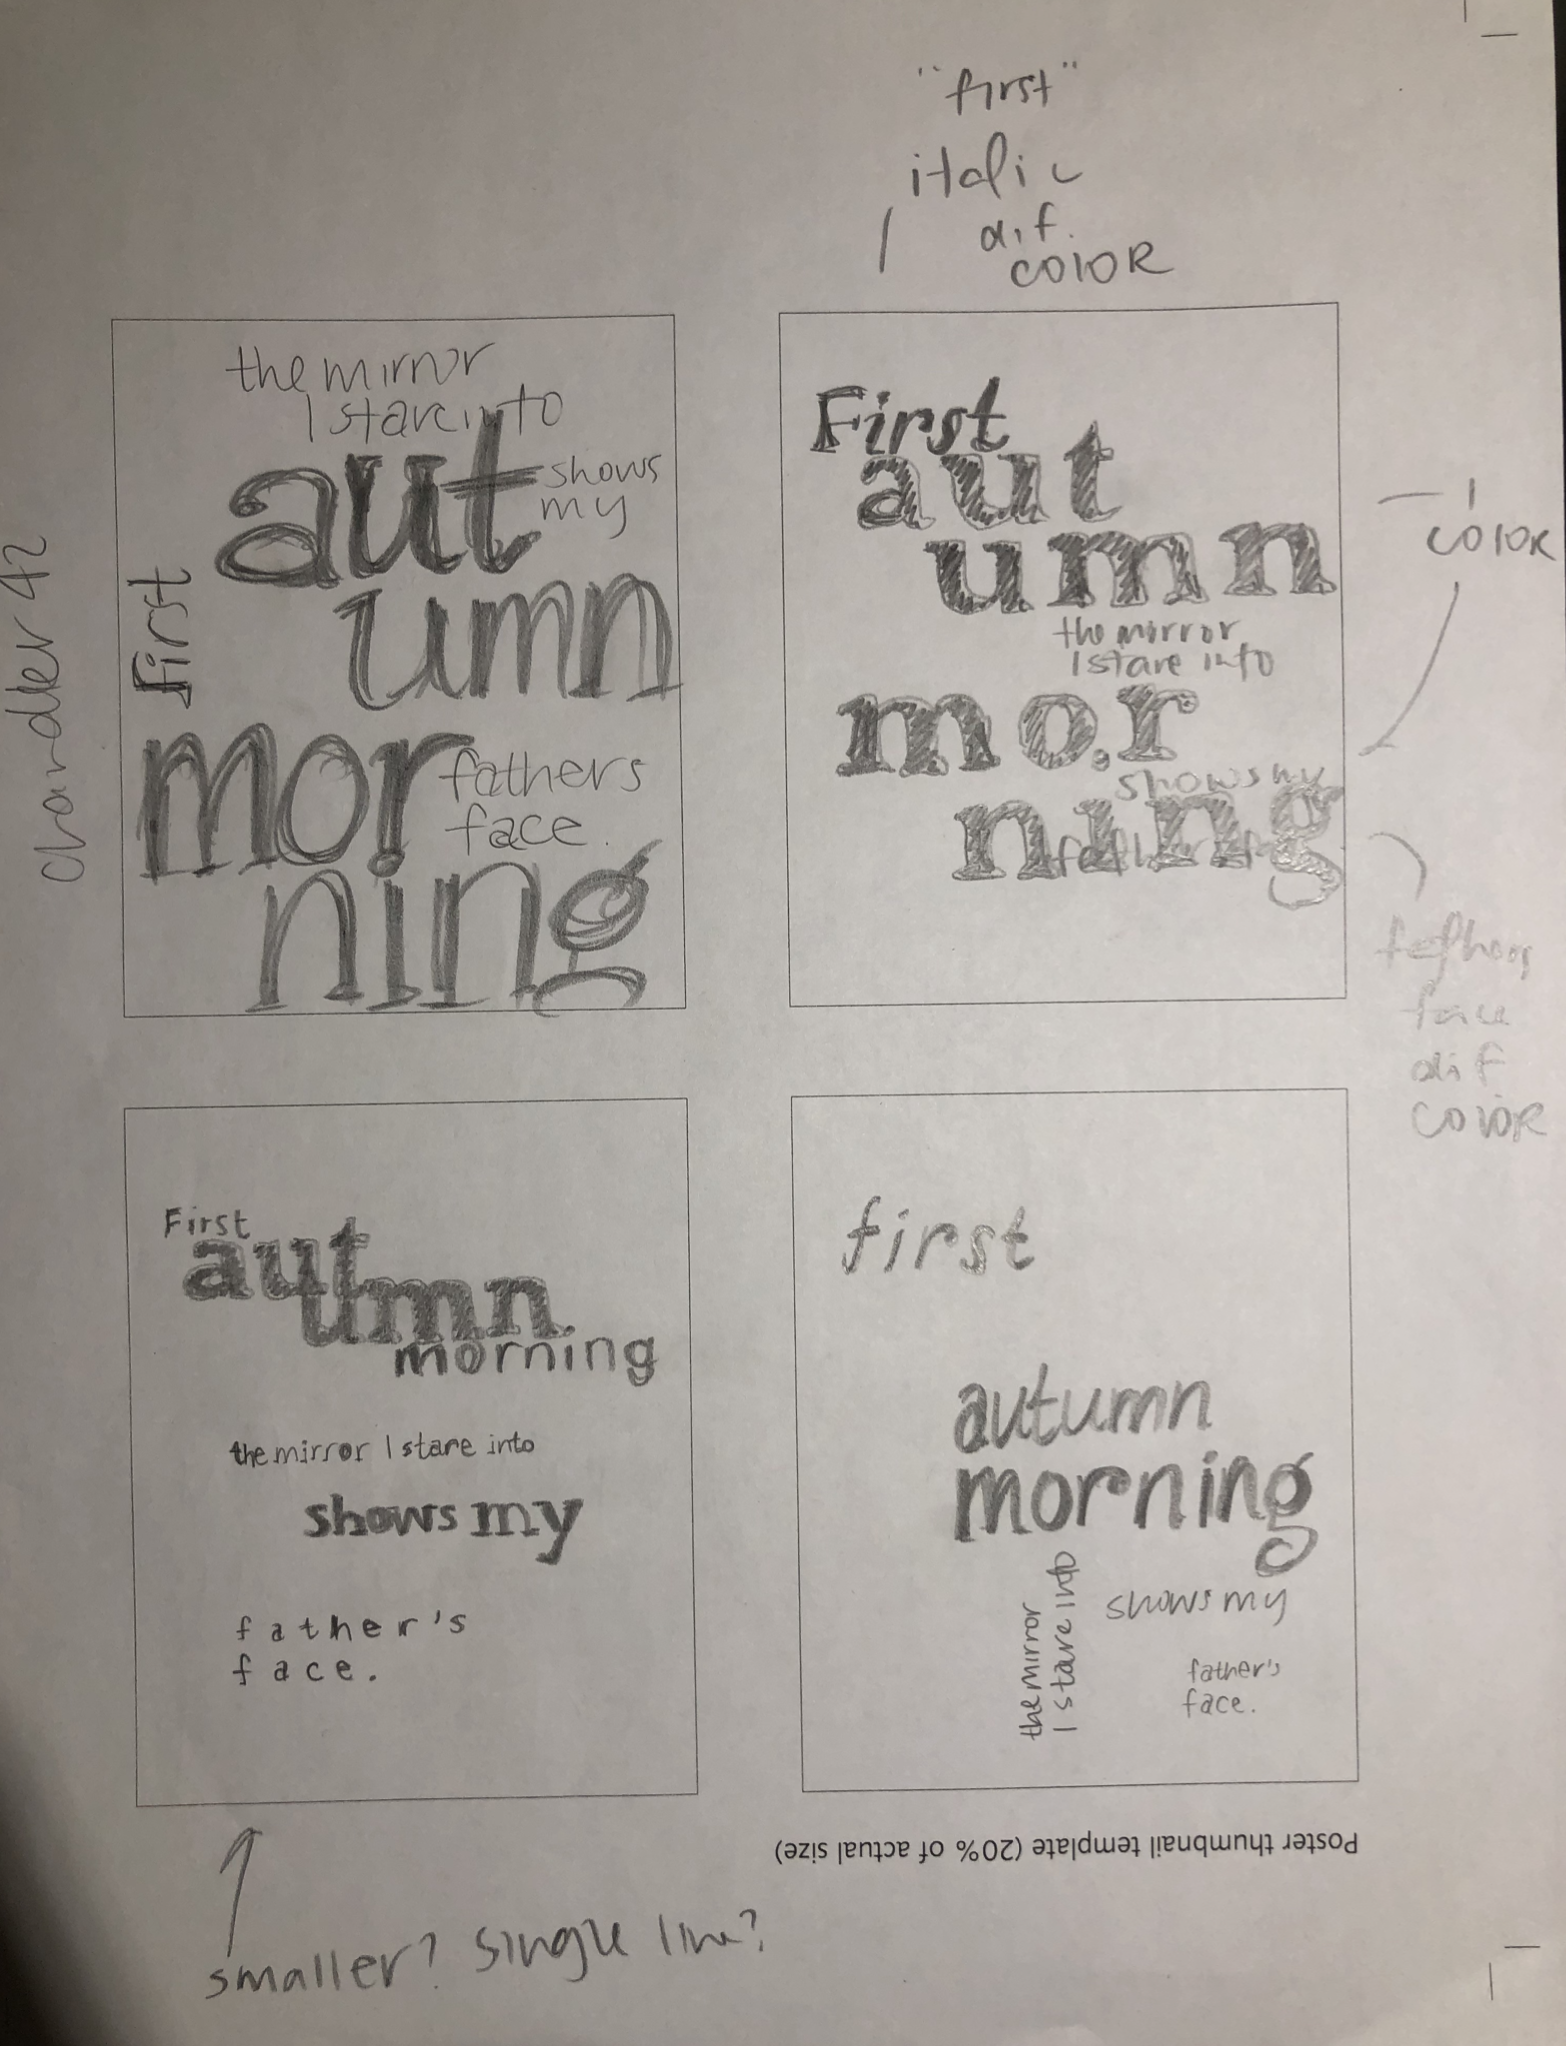 "first"
italic
dif.
COLOR
chandler 42
the mirror
I stare into
aut
shows
my
first
umn
mor
fathers
face.
ning
First
aut
umn
the mirror
I stare into
mor
shows my
ning
father
1
COLOR
face
dif
COLOR
First
aut
umn
morning
the mirror I stare into
shows my
father's
face.
first
autumn
morning
the mirror
I stare into
shows my
father's
face.
Poster thumbnail template (20% of actual size)
smaller? single line?